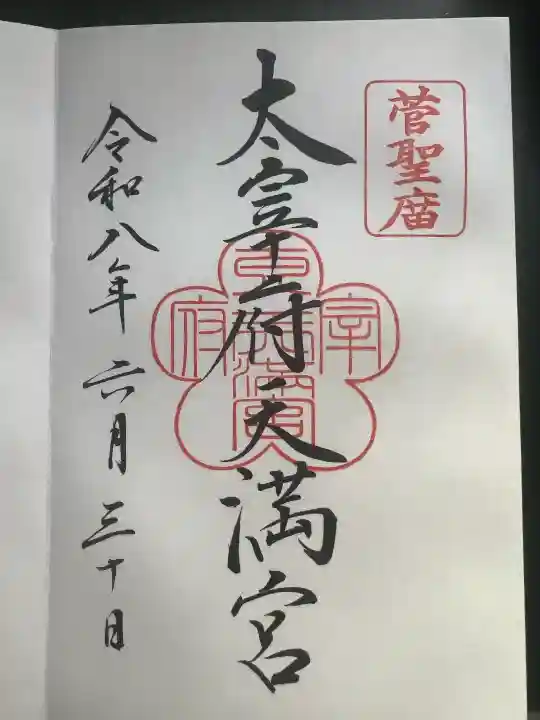 菅聖庿
太宰府天満宮
令和八年六月三十日